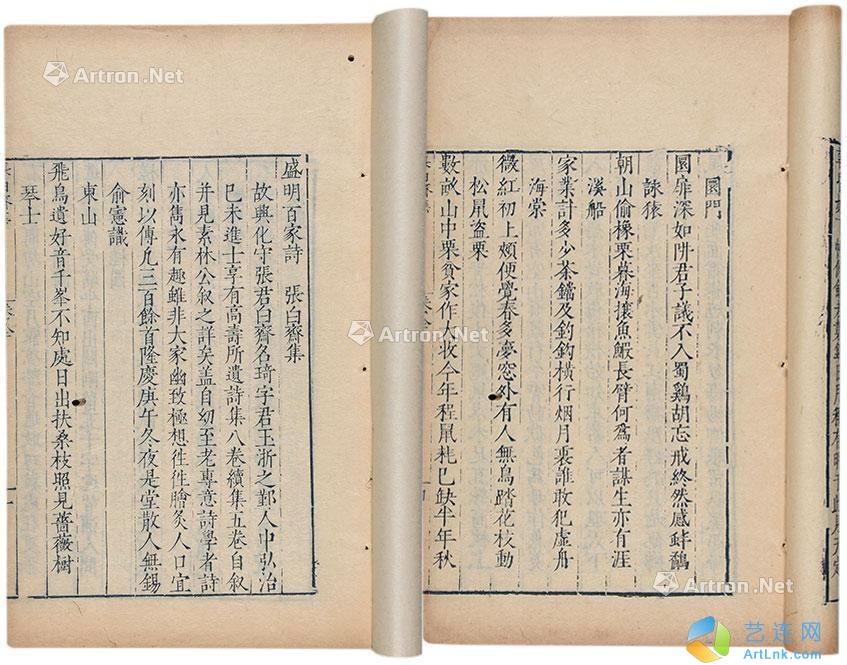 園門
園扉深如阱君子議不入蜀鷄胡忘戒終然感蚌鷸
詠猿
朝山偷橡栗暮海攘魚鰕長臂何為者謀生亦有涯
溪船
家業計多少茶鐺及釣鈎橫行烟月裏誰敢犯虛舟
海棠
微紅初上頰便覺春多夢窓外有人無鳥踏花枝動
松鼠盜栗
數畝山中栗貧家作人收今年程鼠耗巳缺半年秋
盛明百家詩 張白齋集
故興化守張君白齋名琦字君玉浙之鄞人中弘治
巳未進士享有高壽所遺詩集八卷續集五卷自叙
并見素林公叙之詳矣盖自幼至老專意詩學者詩
亦雋永有趣雖非大家幽致極想徃徃膾炙人口宜
刻以傳凡三百餘首隆慶庚午冬夜是堂散人無錫
俞憲識
東山
飛鳥遺好音千峯不知處日出扶桑枝照見薔薇樹
琴士
Artron.Net
Artron.Net
Artron.Net
Artron.Net
艺连网
ArtLnk.com